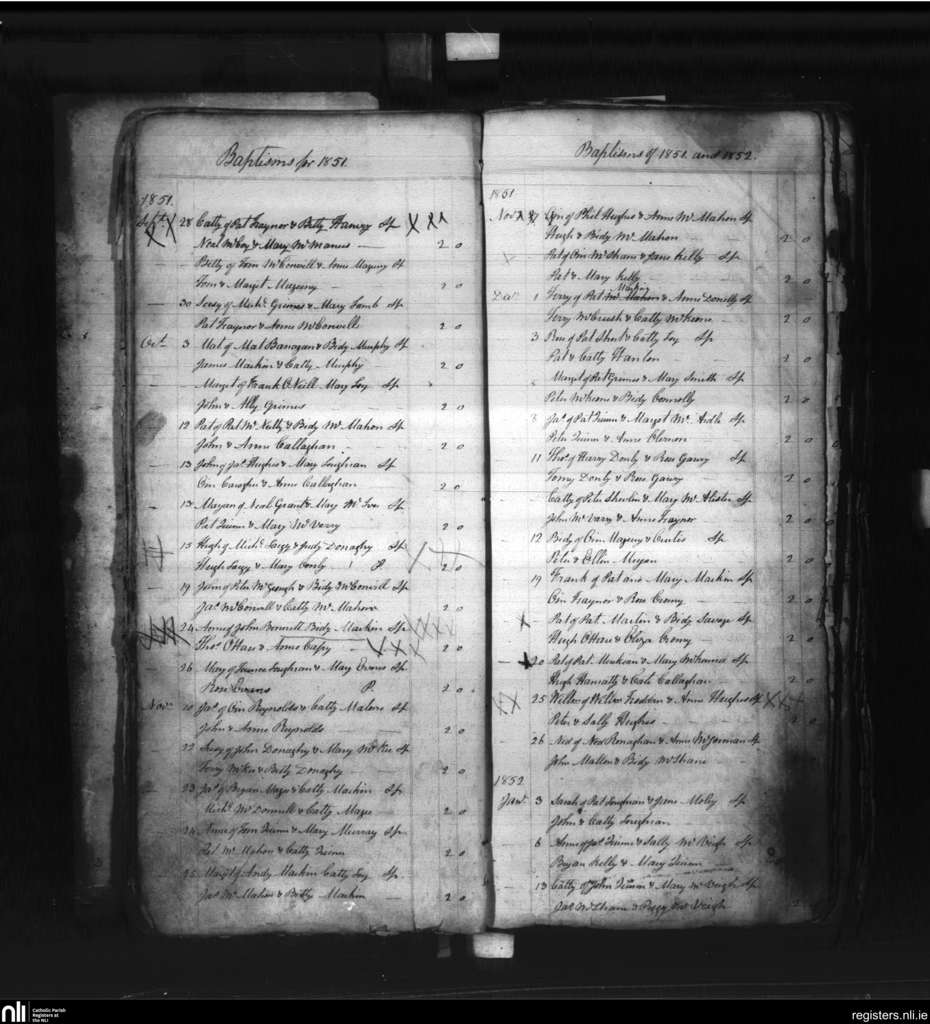 Baptisms for 1851.
1851.
Sept. 28 Catty of Pat Traynor & Betty Sp
Neal McCoy & Mary McManus 2 0
Betty of Tom McConvill & Anne Sp
Tom & Margt 2 0
30 of Michl. Grimes & Mary Lamb Sp.
Pat Traynor & Anne McConvill 2 0
Oct. 3 of Mat Banagan & Bidy Murphy Sp
James Mackin & Catty Murphy 2 0
Margt of Frank O'Neill Mary Sp
John & Ally Grimes 2 0
12 Pat of Pat McNally & Bidy McMahon Sp
John & Anne Callaghan 2 0
13 John of Jas. Hughes & Mary Loughran Sp
Oin & Anne Callaghan 2 0
13 of Neal Grant & Mary Sp
Pat Quinn & Mary McVerry 2 0
15 Hugh of Michl. & Judy Donaghy Sp
Hugh & Mary P. 2 0
19 John of Peter McGeough & Bidy McConvill Sp
Jas. McConvill & Catty McMahon 2 0
24 Anne of John Bennett Bidy Mackin Sp
Thos. O'Hare & Anne 2 0
26 Mary of Loughran & Mary Evans Sp
Rose Evans P. 2 0
Nov. 10 Jas. of Oin Reynolds & Catty Malone Sp
John & Anne Reynolds 2 0
22 of John Donaghy & Mary McKee Sp
Terry McKee & Betty Donaghy 2 0
23 Jas. of Bryan Magee & Catty Mackin Sp.
Michl. McDonnell & Catty Magee 2 0
24 Anne of Tom Quinn & Mary Murray Sp
Pat McMahon & Catty Quinn 2 0
25 Margt of Andy Mackin Catty Sp.
Jas. McMahon & Betty Mackin 2 0
Baptisms of 1851. and 1852.
1851
Nov. Oin of Phil Hughes & Anne McMahon Sp
Hugh & Bidy McMahon 2 0
Pat of Oin McShane & Jane Kelly Sp
Pat & Mary Kelly 2 0
Mackin
Dec. 1 Terry of Pat McMahon & Anne Donelly Sp
Terry & Catty McKeone 2 0
3 of Pat & Catty Sp
Pat & Catty Hanlon 2 0
Margt of Pat Grimes & Mary Smith Sp
Peter McKeone & Bidy Connolly 2 0
3 Jas. of Pat Quinn & Margt McArdle Sp
Peter Quinn & Anne 2 0
11 Thos. of Harry Donly & Rose Garvy Sp
Tomy Donly & Rose Garvy 2 0
Catty of Peter Shevlin & Mary McAlister Sp
John McVerry & Anne Traynor 2 0
12 Bidy of Oin & Curtis Sp.
Peter & Ellen 2 0
19 Frank of Pat and Mary Mackin Sp
Oin Traynor & Rose 2 0
Pat of Pat. Martin & Bidy Savage Sp
Hugh O'Hare & Eliza 2 0
20 Pat of Pat. & Mary Sp
Hugh & Cath Callaghan 2 0
25 Willm of Willm & Anne Hughes Sp
Peter & Sally Hughes 2 0
26 Ned of Ned Ronaghan & Anne McGorman Sp
John Mallon & Bidy McShane 2 0
1852
Jany. 3 Sarah of Pat Loughran & Jane Sp
John & Catty Loughran
6 Anne of Jas Quinn & Sally McVeigh Sp
Bryan Kelly & Mary Quinn
13 Catty of John Quinn & Mary McVeigh Sp
Jas. McShane & Peggy McVeigh 2
nli
Catholic Parish
Registers at
the NLI
registers.nli.ie